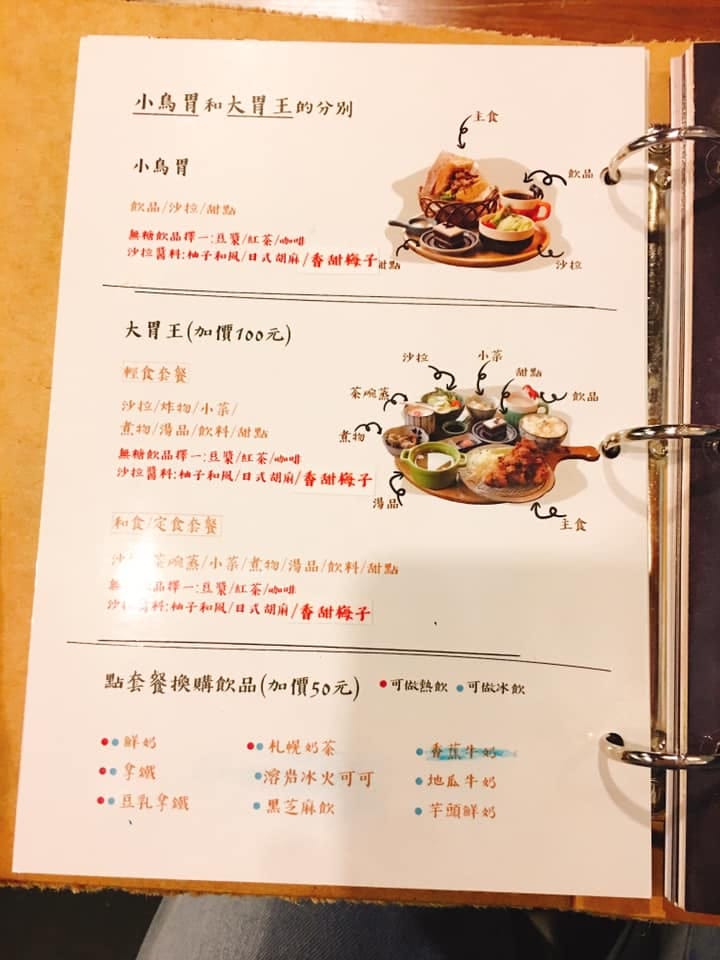 小鳥胃和大胃王的分別
主食
小鳥胃
飲品
飲品/沙拉/甜點
無糖飲品擇一:豆漿/紅茶/咖啡
沙拉醬料:柚子和風/日式胡麻/香甜梅子
甜點
沙拉
大胃王(加價100元)
沙拉
小菜
甜點
飲品
茶碗蒸
煮物
湯品
主食
輕食套餐
沙拉/炸物/小菜/
煮物/湯品/飲料/甜點
無糖飲品擇一:豆漿/紅茶/咖啡
沙拉醬料:柚子和風/日式胡麻/香甜梅子
和食/定食套餐
沙 茶碗蒸/小菜/煮物/湯品/飲料/甜點
無 品擇一:豆漿/紅茶/咖啡
沙拉醬料:柚子和風/日式胡麻/香甜梅子
點套餐換購飲品(加價50元) ●可做熱飲 ●可做冰飲
●●鮮奶
●●拿鐵
●●豆乳拿鐵
●●札幌奶茶
●溶岩冰火可可
●黑芝麻飲
●香蕉牛奶
●地瓜牛奶
●芋頭鮮奶